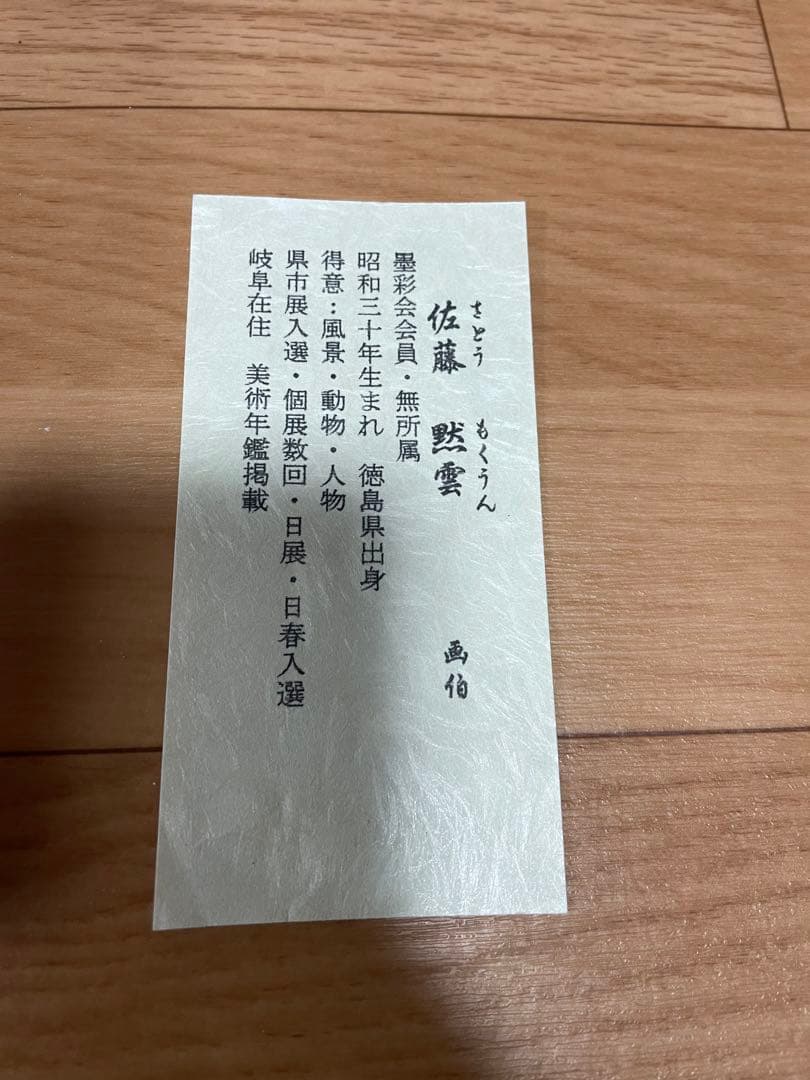 さとう もくうん
佐藤 黙雲 画伯
墨彩会会員・無所属
昭和三十年生まれ 徳島県出身
得意：風景・動物・人物
県市展入選・個展数回・日展・日春入選
岐阜在住 美術年鑑掲載